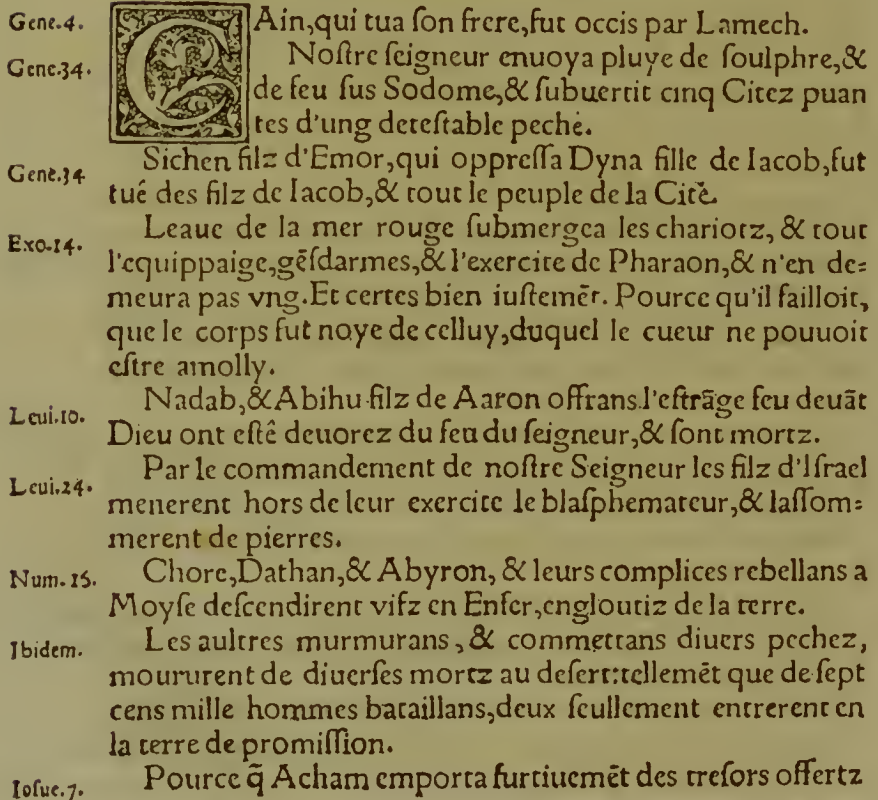 Gene.4. CAin,qui tua ſon frere,fut occis par Lamech.
Gene.34. Noſtre ſeigneur enuoya pluye de ſoulphre,&
de feu ſus Sodome,& ſubuertit cinq Citez puan
tes d'ung deteſtable peché.
Gene.34 Sichen filz d'Emor,qui oppreſſa Dyna fille de Iacob,fut
tué des filz de Iacob,& tout le peuple de la Cité.
Exo.14. Leaue de la mer rouge ſubmergea les chariotz, & tout
l'equippaige,gēſdarmes,& l'exercite de Pharaon,& n'en de=
meura pas vng.Et certes bien iuſtemēt. Pource qu'il failloit,
que le corps fut noye de celluy,duquel le cueur ne pouuoit
eſtre amolly.
Leui.10. Nadab,& Abihu filz de Aaron offrans l'eſtrāge feu deuāt
Dieu ont eſté deuorez du feu du ſeigneur,& ſont mortz.
Leui.24. Par le commandement de noſtre Seigneur les filz d'Iſrael
menerent hors de leur exercite le blaſphemateur,& laſſom=
merent de pierres.
Num.16. Chore,Dathan,& Abyron, & leurs complices rebellans a
Moyſe deſcendirent vifz en Enfer,engloutiz de la terre.
Ibidem. Les aultres murmurans , & commettans diuers pechez,
moururent de diuerſes mortz au deſert:tellemēt que de ſept
cens mille hommes bataillans,deux ſeullement entrerent en
la terre de promiſſion.
Ioſue.7. Pource q̄ Acham emporta furtiuemēt des treſors offertz